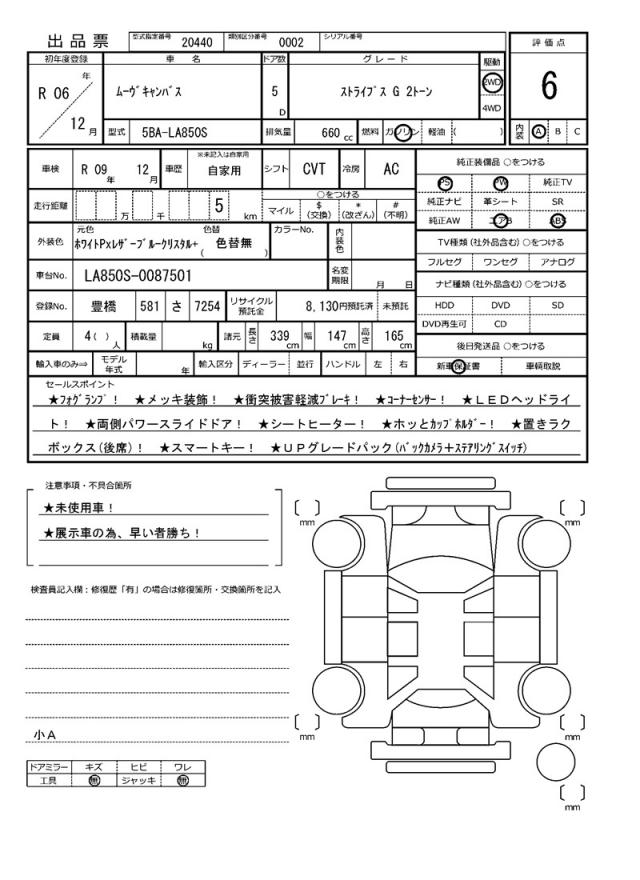 出品票 型式指定番号 20440 類別区分番号 0002 シリアル番号
評価点
6
内装 A B C
初年度登録 車名 ドア数 グレード 駆動
R 06 年 12 月 ムーヴキャンバス 5 D ストライプス G 2トーン 2WD 4WD
型式 5BA-LA850S 排気量 660 cc 燃料 ガソリン 軽油 ( )
車検 R 09 年 12 月 車歴 ※未記入は自家用 自家用 シフト CVT 冷房 AC
走行距離 万 千 5 km ○をつける マイル $(交換) *(改ざん) #(不明)
外装色 元色 ホワイトPxレザーブルークリスタル+ 色替 ( 色替無 ) カラーNo. 内装色
車台No. LA850S-0087501 名変期限 月 日
登録No. 豊橋 581 さ 7254 リサイクル預託金 8,130円預託済 未預託
定員 4( ) 人 積載量 kg 諸元 長さ 339 cm 幅 147 cm 高さ 165 cm
輸入車のみ⇒ モデル年式 年 輸入区分 ディーラー 並行 ハンドル 左 右
純正装備品 ○をつける
PS PW 純正TV
純正ナビ 革シート SR
純正AW エアB ABS
TV種類 (社外品含む) ○をつける
フルセグ ワンセグ アナログ
ナビ種類 (社外品含む) ○をつける
HDD DVD SD
DVD再生可 CD
後日発送品 ○をつける
新車保証書 車輌取説
セールスポイント
★フォグランプ! ★メッキ装飾! ★衝突被害軽減ブレーキ! ★コーナーセンサー! ★LEDヘッドライ
ト! ★両側パワースライドドア! ★シートヒーター! ★ホッとカップホルダー! ★置きラク
ボックス(後席)! ★スマートキー! ★UPグレードパック(バックカメラ+ステアリングスイッチ)
注意事項・不具合箇所
★未使用車!
★展示車の為、早い者勝ち!
検査員記入欄:修復歴「有」の場合は修復箇所・交換箇所を記入
小A
ドアミラー キズ ヒビ ワレ
工具 無 ジャッキ 無
[ ] mm
[ ] mm
[ ] mm
[ ] mm
[ ] mm